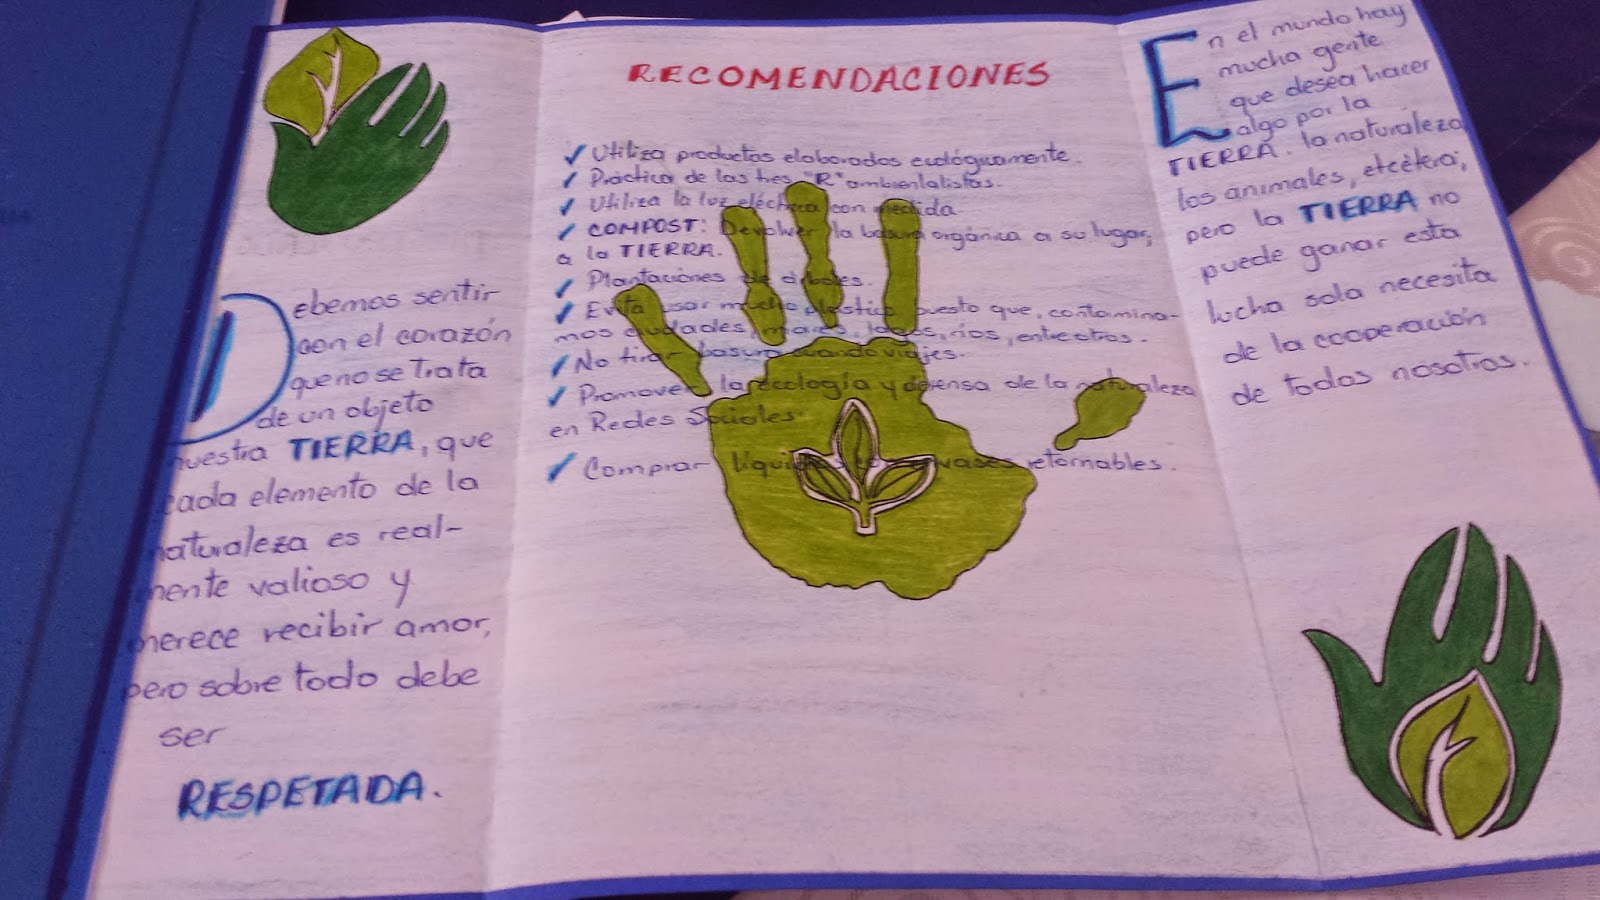 Debemos sentir
con el corazón
que no se trata
de un objeto
nuestra TIERRA, que
cada elemento de la
naturaleza es real-
mente valioso y
merece recibir amor,
pero sobre todo debe
ser
RESPETADA.
RECOMENDACIONES
✓ Utiliza productos elaborados ecológicamente.
✓ Práctica de las tres "R" ambientalistas.
✓ Utiliza la luz eléctrica con medida.
✓ COMPOST: Devolver la basura orgánica a su lugar,
a la TIERRA.
✓ Plantaciones de árboles.
✓ Evita usar mucho plástico puesto que, contamina-
mos ciudades, mares, lagos, ríos, entre otros.
✓ No tirar basura cuando viajes.
✓ Promover la ecología y defensa de la naturaleza
en Redes Sociales.
✓ Comprar líquidos en envases retornables.
En el mundo hay
mucha gente
que desea hacer
algo por la
TIERRA. la naturaleza
los animales, etcétera;
pero la TIERRA no
puede ganar esta
lucha sola necesita
de la cooperación
de todos nosotros.